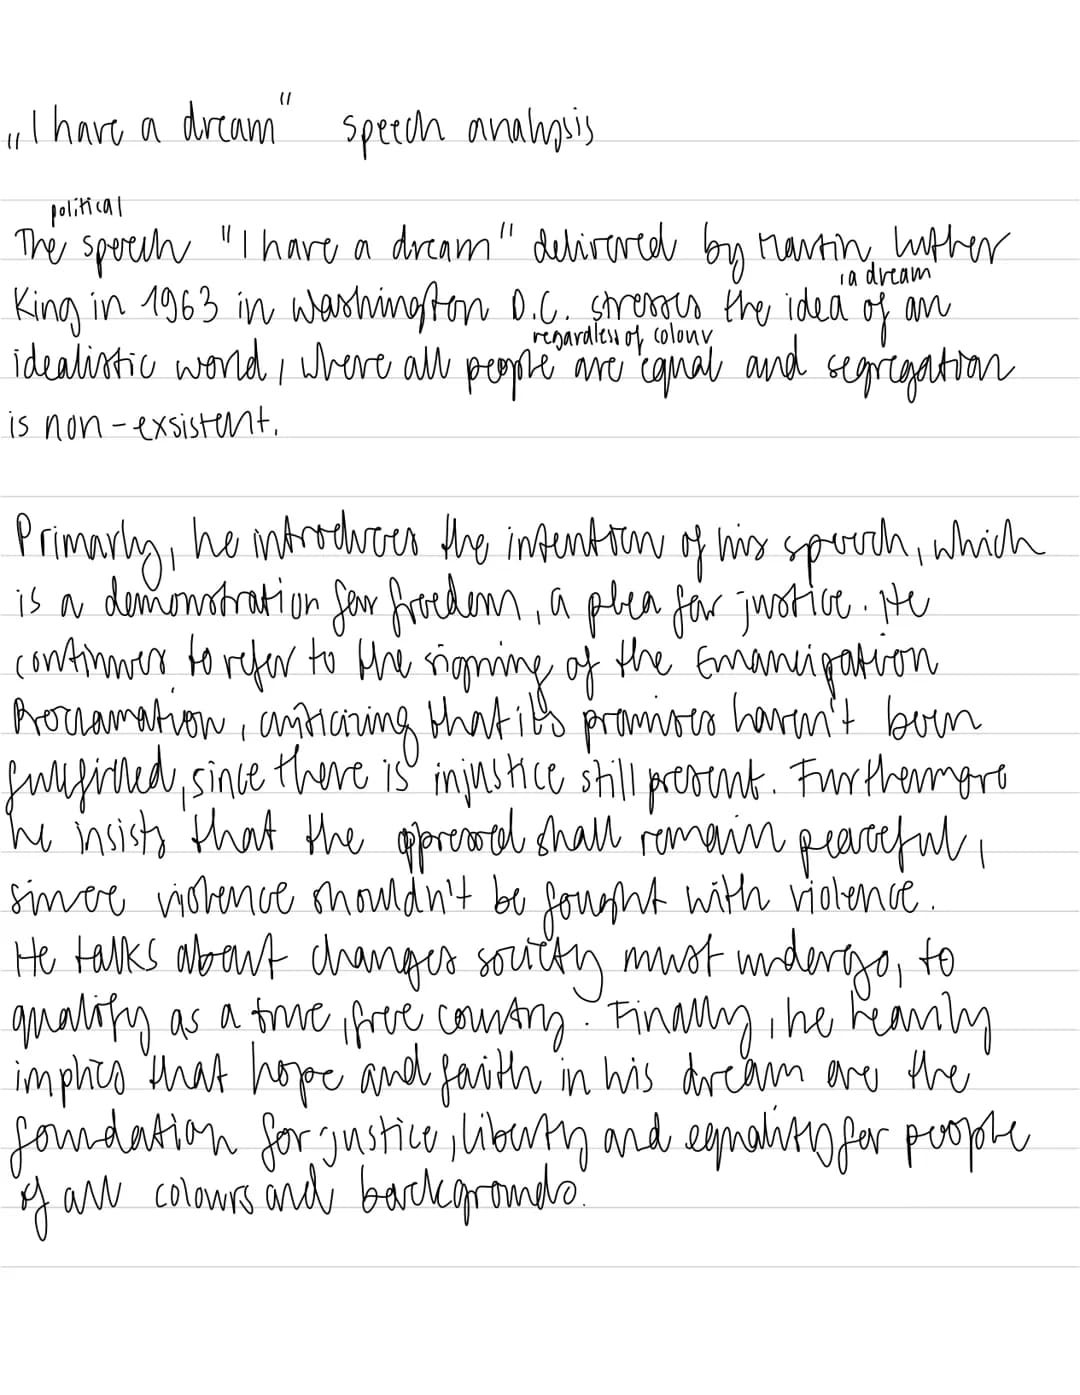 „I have a dream" speech analysis
political
The speech "I have a dream" delivered by Martin Luther
, a dream
King in 1963 in Washington D.C. stresses the idea of an
regardless of colour
idealistic world, where all people are equal and segregation
is non-exsistent.
Primarly, he introduces the intention of his speech, which
is a demonstration for freedom, a plea for justice. He
continues to refer to the signing of the Emancipation
Proclamation, criticizing that it's promises haven't been
fullfilled, since there is injustice still present. Furthermore
he insists that the oppressed shall remain peaceful,
since violence shouldn't be fought with violence.
He talks about changes society must undergo, to
qualify as a true, free country. Finally, he heavily
implies that hope and faith in his dream are the
foundation for justice, liberty and equality for people
of all colours and backgrounds.